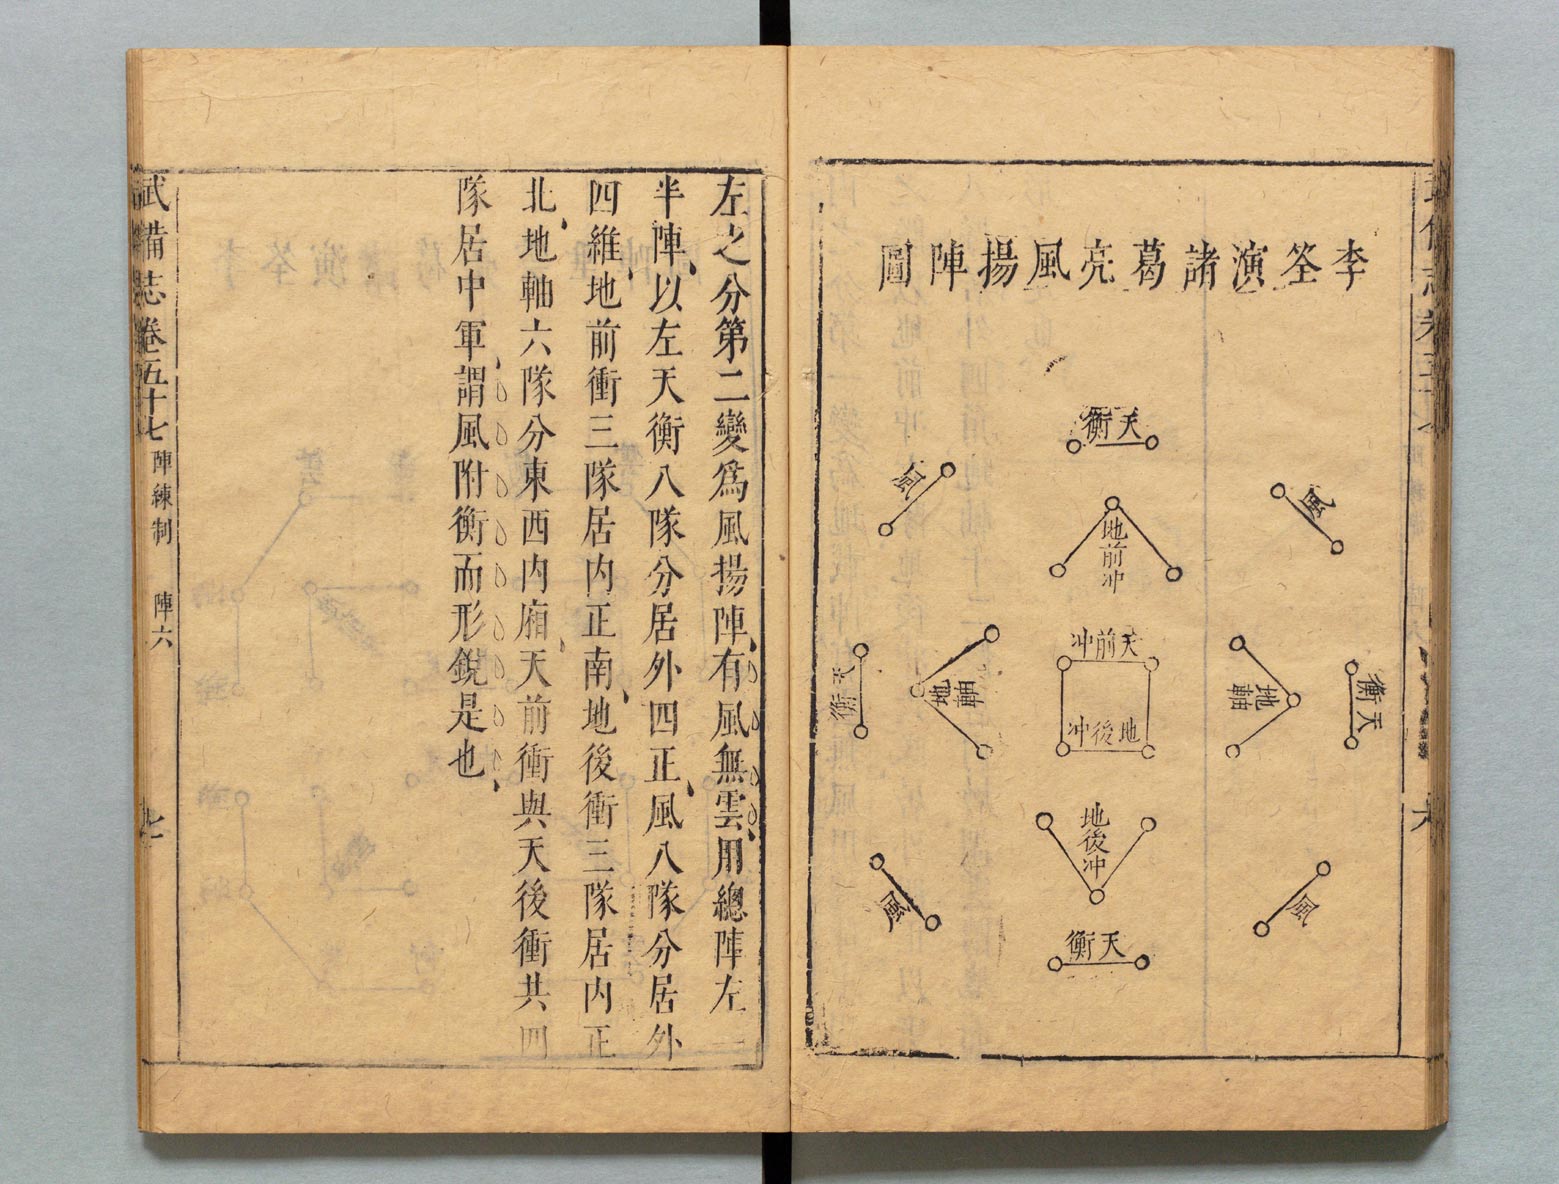 李筌演諸葛亮風揚陣圖
天衝
風
風
地前冲
天前冲
地後冲
天衝
地軸
地軸
天衝
地後冲
風
風
天衝
左之分第二變爲風揚陣有風無雲用總陣左
半陣以左天衡八隊分居外四正風八隊分居外
四維地前衝三隊居内正南地後衝三隊居内正
北地軸六隊分東西内廂天前衝與天後衝共四
隊居中軍謂風附衡而形銳是也
武備志卷五十七 陣練制 陣六 七